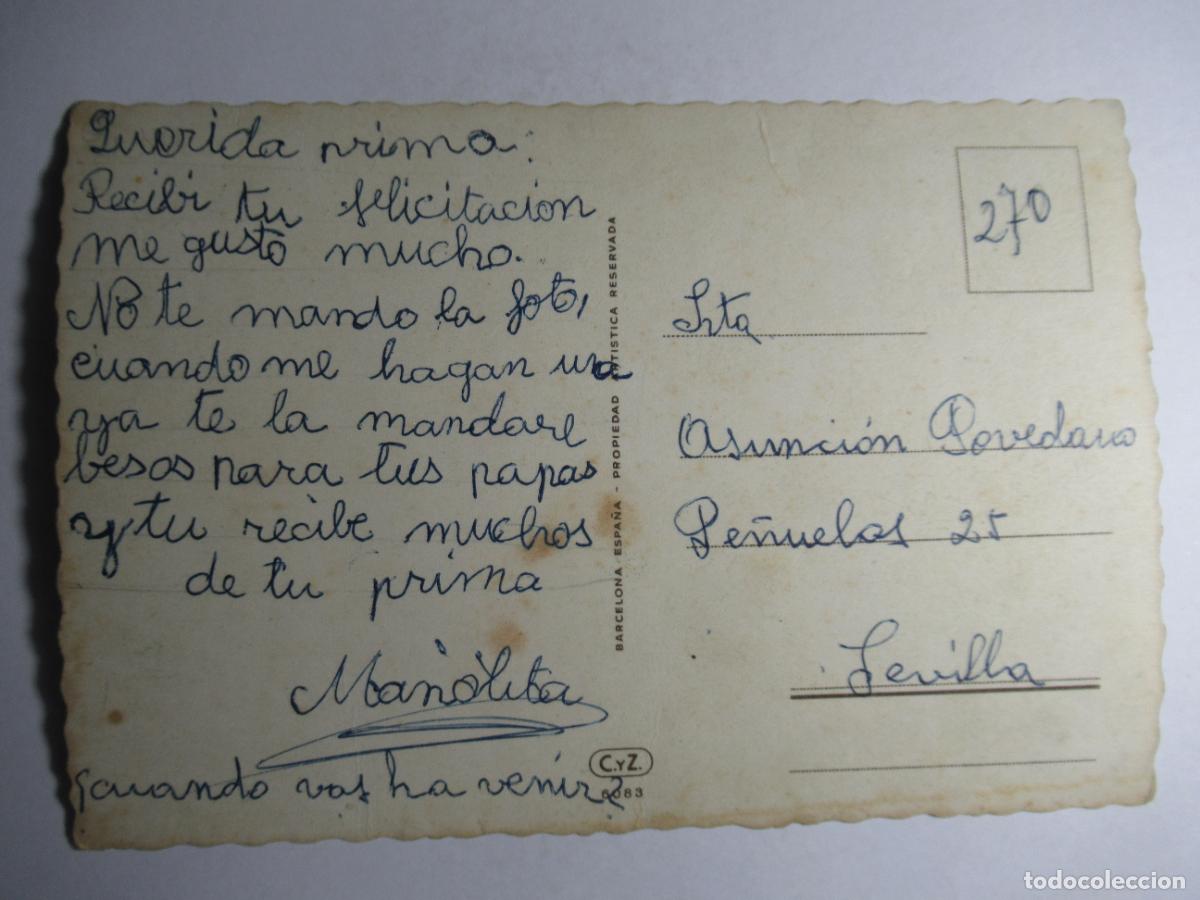 Querida prima:
Recibi tu felicitacion
me gustó mucho.
No te mando la foto,
cuando me hagan una
ya te la mandare
besos para tus papas
y tu recibe muchos
de tu prima
Manolita
¿cuando vas ha venir?
BARCELONA - ESPAÑA - PROPIEDAD ARTISTICA RESERVADA
C.YZ.
6083
270
Srta
Asunción Povedano
Peñuelas 25
Sevilla
todocoleccion